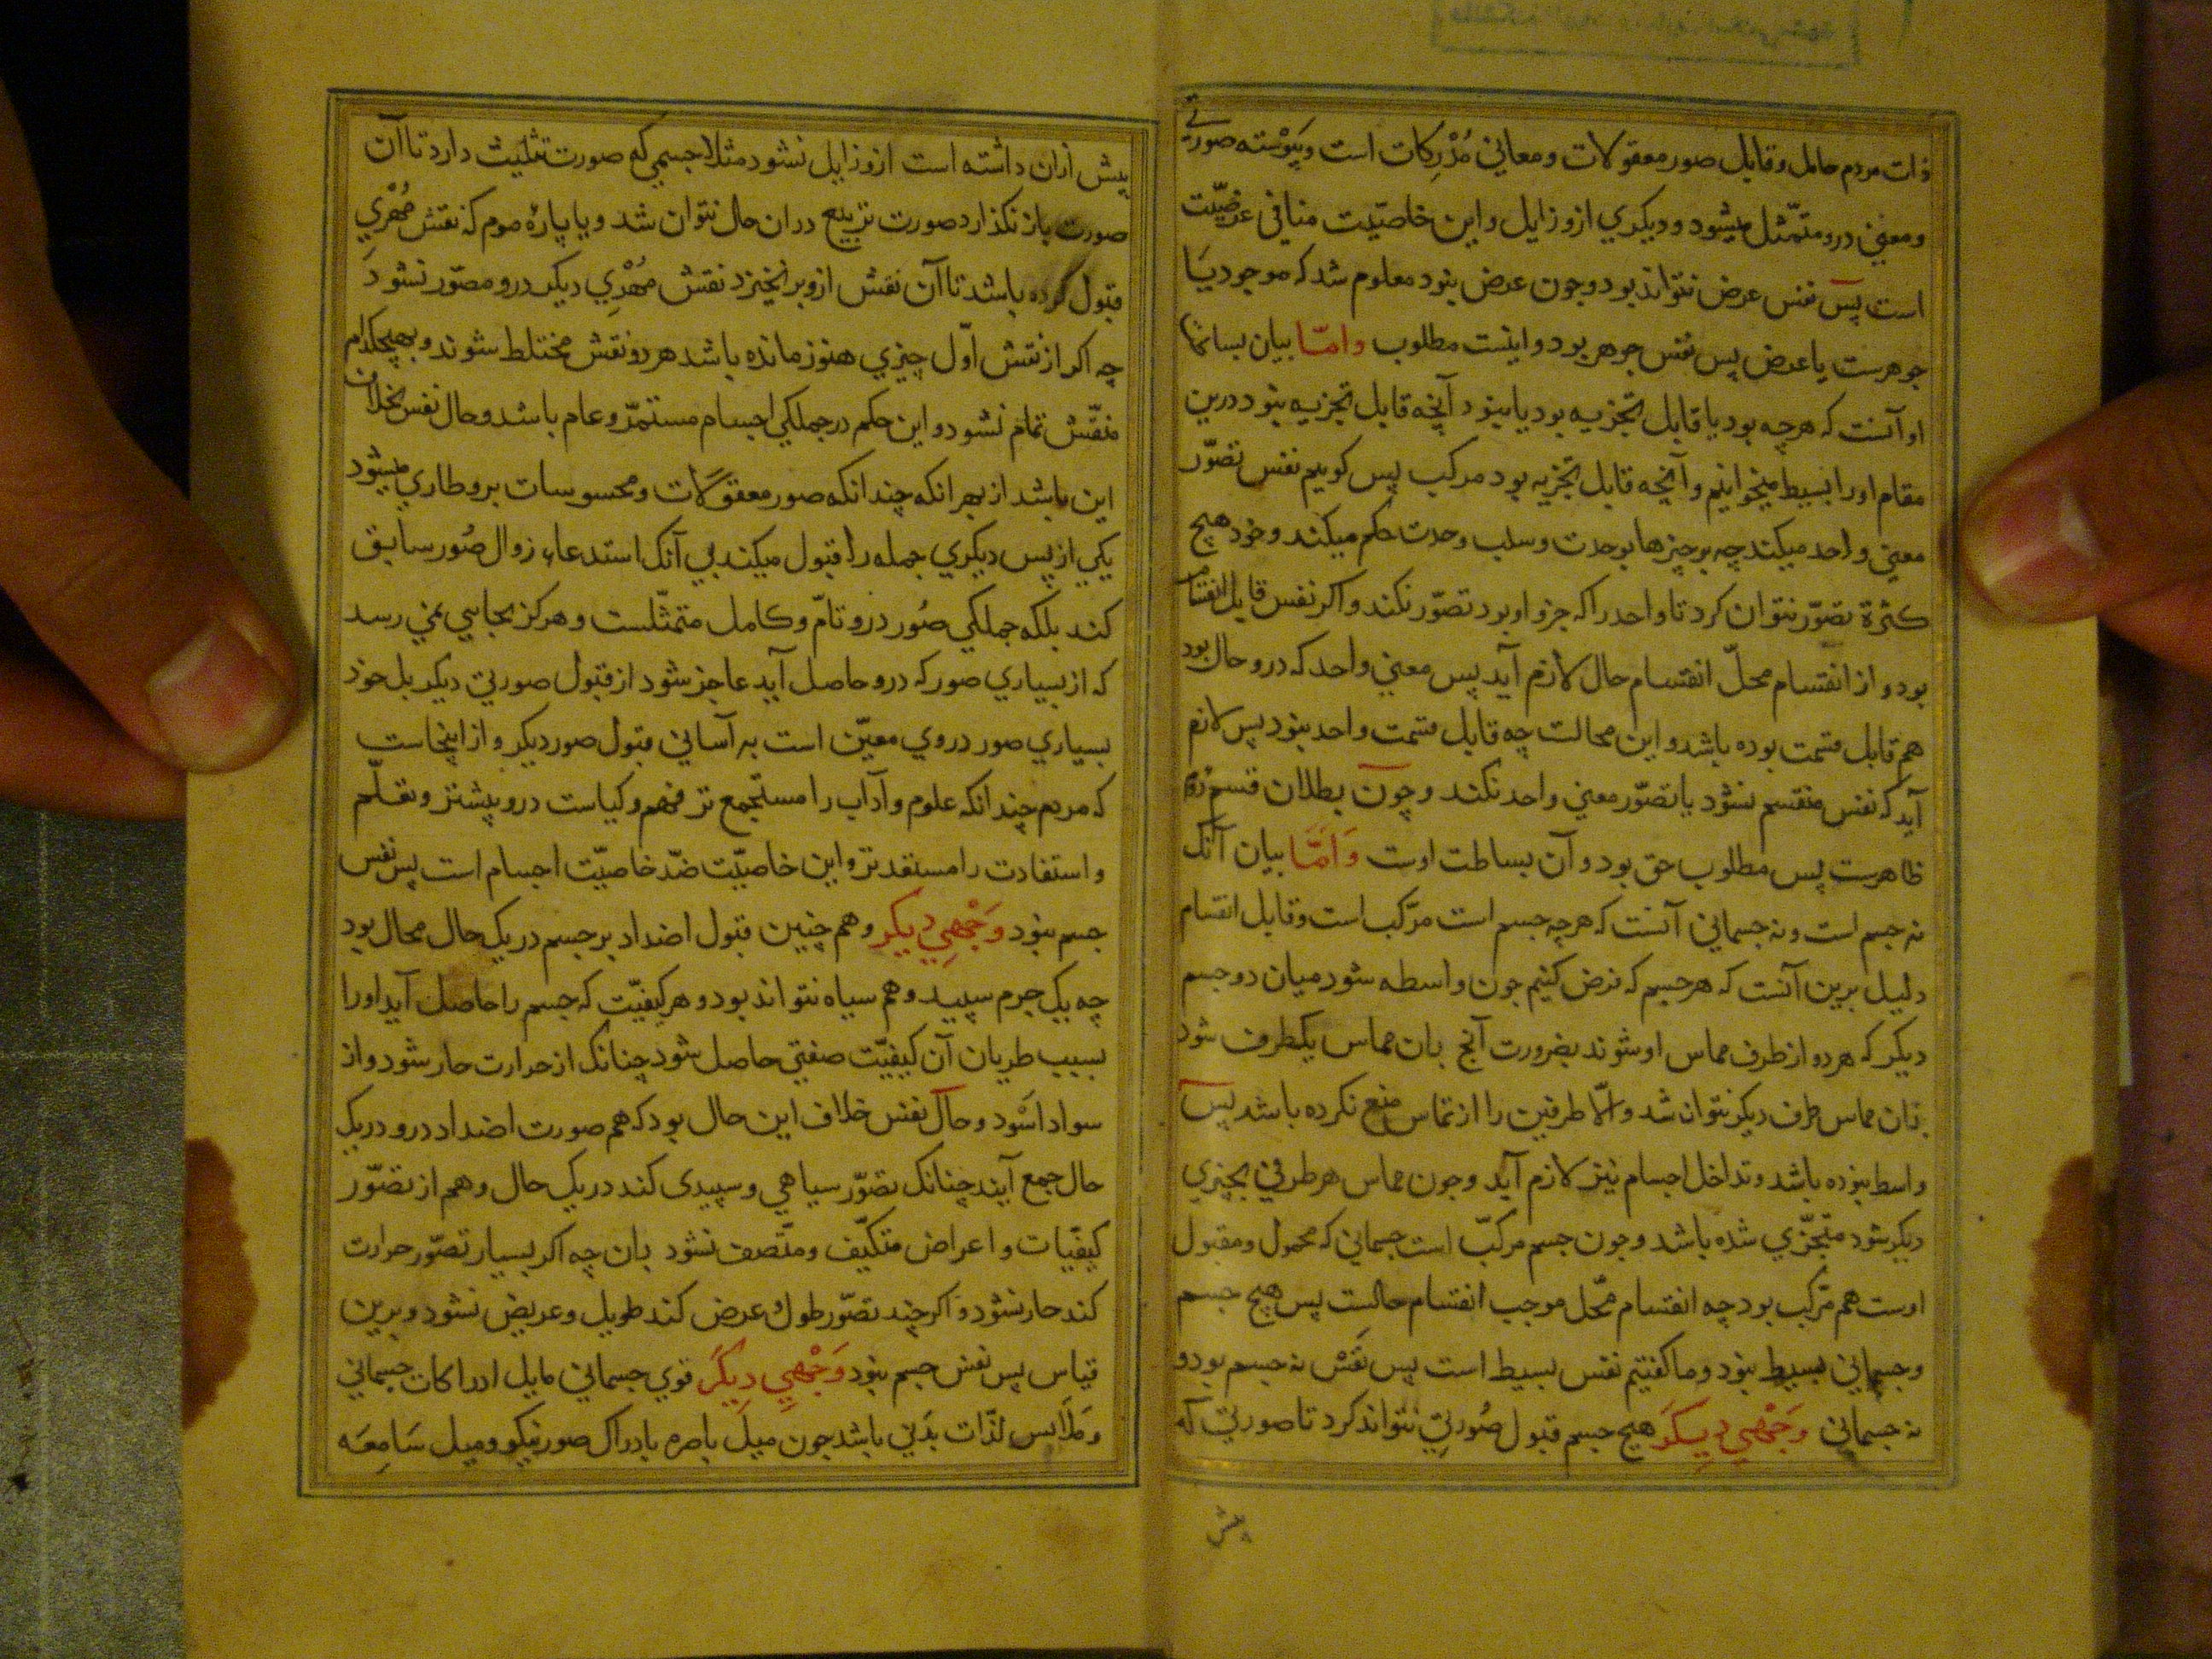 ذات مردم حامل و قابل صور معقولات و معاني مُدْرِكات است و پيوسته صورتي
و معني درو متمّثل ميشود و ديكري ازو زايل و اين خاصيّت منافي عرضيّت
است پس نفس عرض نتواند بود و چون عرض نبود معلوم شد كه موجود يا
جوهرست يا عرض پس نفس جوهر بود و اينست مطلوب وامّا بيان بساطة
او آنست كه هرچه بود يا قابل تجزيه بود يا نبود آنچه قابل تجزيه نبود درين
مقام اورا بسيط ميخوانيم و آنچه قابل تجزيه بود مركب پس كوييم نفس تصوّر
معني واحد ميكند چه بر چيزها بوحدت و سلب وحدت حكم ميكند و خود هيچ
كثرة تصوّر نتوان كرد تا واحد را كه جزو او بود تصوّر نكند و اكر نفس قابل انقسام
بود و از انقسام محلّ انقسام حال لازم آيد پس معني واحد كه درو حال بود
هم قابل قسمت بوده باشد و اين محالست چه قابل قسمت واحد نبود پس لازم
آيد كه نفس منقسم نشود يا تصوّر معني واحد نكند و چون بطلان قسم دوم
ظاهرست پس مطلوب حق بود و آن بساطت اوست وَامَّا بيان آنك
نه جسم است و نه جسماني آنست كه هرچه جسم است مركّب است و قابل انقسام
دليل برين آنست كه هر جسم كه فرض كنيم چون واسطه شود ميان دو جسم
ديكر كه هر دو از طرف مماس او شوند بضرورت آنچ بان مماس يكطرف شود
بذان مماس طرف ديكر نتوان شد و الّا طرفين را از تماس منع نكرده باشد پس
واسط نبوده باشد و تداخل اجسام نيز لازم آيد و چون مماس هر طرفي بچيزي
ديكر شود متجزّي شده باشد و چون جسم مركّب است جسماني كه محمول و مقبول
اوست هم مركّب بود چه انقسام محّل موجب انقسام حالست پس هيچ جسم
و جسماني بسيط نبود و ما كفتيم نفس بسيط است پس نَفَسْ نه جسم بود و
نه جسماني وَجْهي ديكَر هيچ جسم قبول صُورتِي نتواند كرد تا صورتي كه
پيش
پيش ازان داشته است ازو زايل نشود مثلا جسمي كه صورت تثليث دارد تا آن
صورت باز نكذارد صورت تربيع دران حال نتوان شد و يا پارۀ موم كه نقش مُهْرِي
قبول كرده باشد تا آن نقش ازو برنخيزد نقش مُهْرِي ديكر درو مصوّر نشود
چه اكر از نقش اوّل چيزي هنوز مانده باشد هر دو نقش مختلط شوند و بهيچكدام
منقّش تمام نشود و اين حكم در جملكي اجسام مستمرّ و عام باشد و حال نفس بخلاف
اين باشد از بهر انكه چندانكه صور معقولات و محسوسات برو طاري ميشود
يكي از پس ديكري جمله را قبول ميكند بي آنك استدعاء زوال صُور سابق
كند بلكه جملكي صُور درو تامّ و كامل متمثّلست و هركز بجايي نمي رسد
كه از بسياري صور كه درو حاصل آيد عاجز شود از قبول صورتي ديكر بل خود
بسياري صور در وي معيّن است به آساني قبول صور ديكر و از اينجاست
كه مردم چندانكه علوم و آداب را مستجمع تر فهم و كياست درو پيشتر و تعلّم
و استفادت را مستعد تر و اين خاصيّت ضدّ خاصيّت اجسام است پس نفس
جسم نبود وَجْهِي ديكر و هم چنين قبول اضداد بر جسم در يك حال محال بود
چه يك جرم سپيد و هم سياه نتواند بود و هر كيفيّت كه جسم را حاصل آيد اورا
بسبب طريان آن كيفيّت صفتي حاصل شود چنانك از حرارت حار شود و از
سواد اسْود و حال نفس خلاف اين حال بود كه هم صورت اضداد درو در يك
حال جمع آيند چنانك تصوّر سياهي و سپيدى كند در يك حال و هم از تصوّر
كيفيّات و اعراض متكيّف و متّصف نشود بان چه اكر بسيار تصوّر حرارت
كند حار نشود و اكر چند تصوّر طول و عرض كند طويل و عريض نشود و برين
قياس پس نفس جسم نبود وَجْهِي ديكَر قوي جسماني مايل ادراكات جسماني
و مَلَابس لذّات بدَني باشد چون ميل باصره بادراك صور نيكو و ميل سَامِعَه